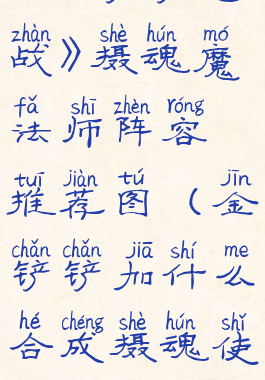 zhàn shè hún mó
战》摄魂魔
fǎ shī zhèn róng
法师阵容
tuī jiàn tú jīn
推荐图（金
chǎn chǎn jiā shí me
铲铲加什么
hé chéng shè hún shǐ
合成摄魂使